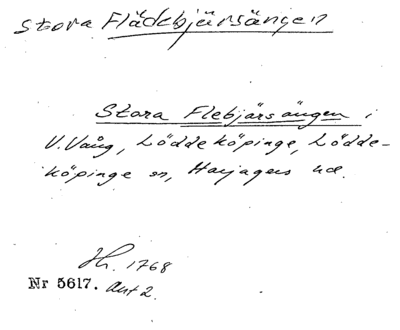 Stora Flädebjärsängen
Stora Flebjärsängen i
V. Vång, Löddeköpinge, Lödde-
köpinge sn, Harjagers hd.
Hr. 1768
Nr 5617. Akt 2.